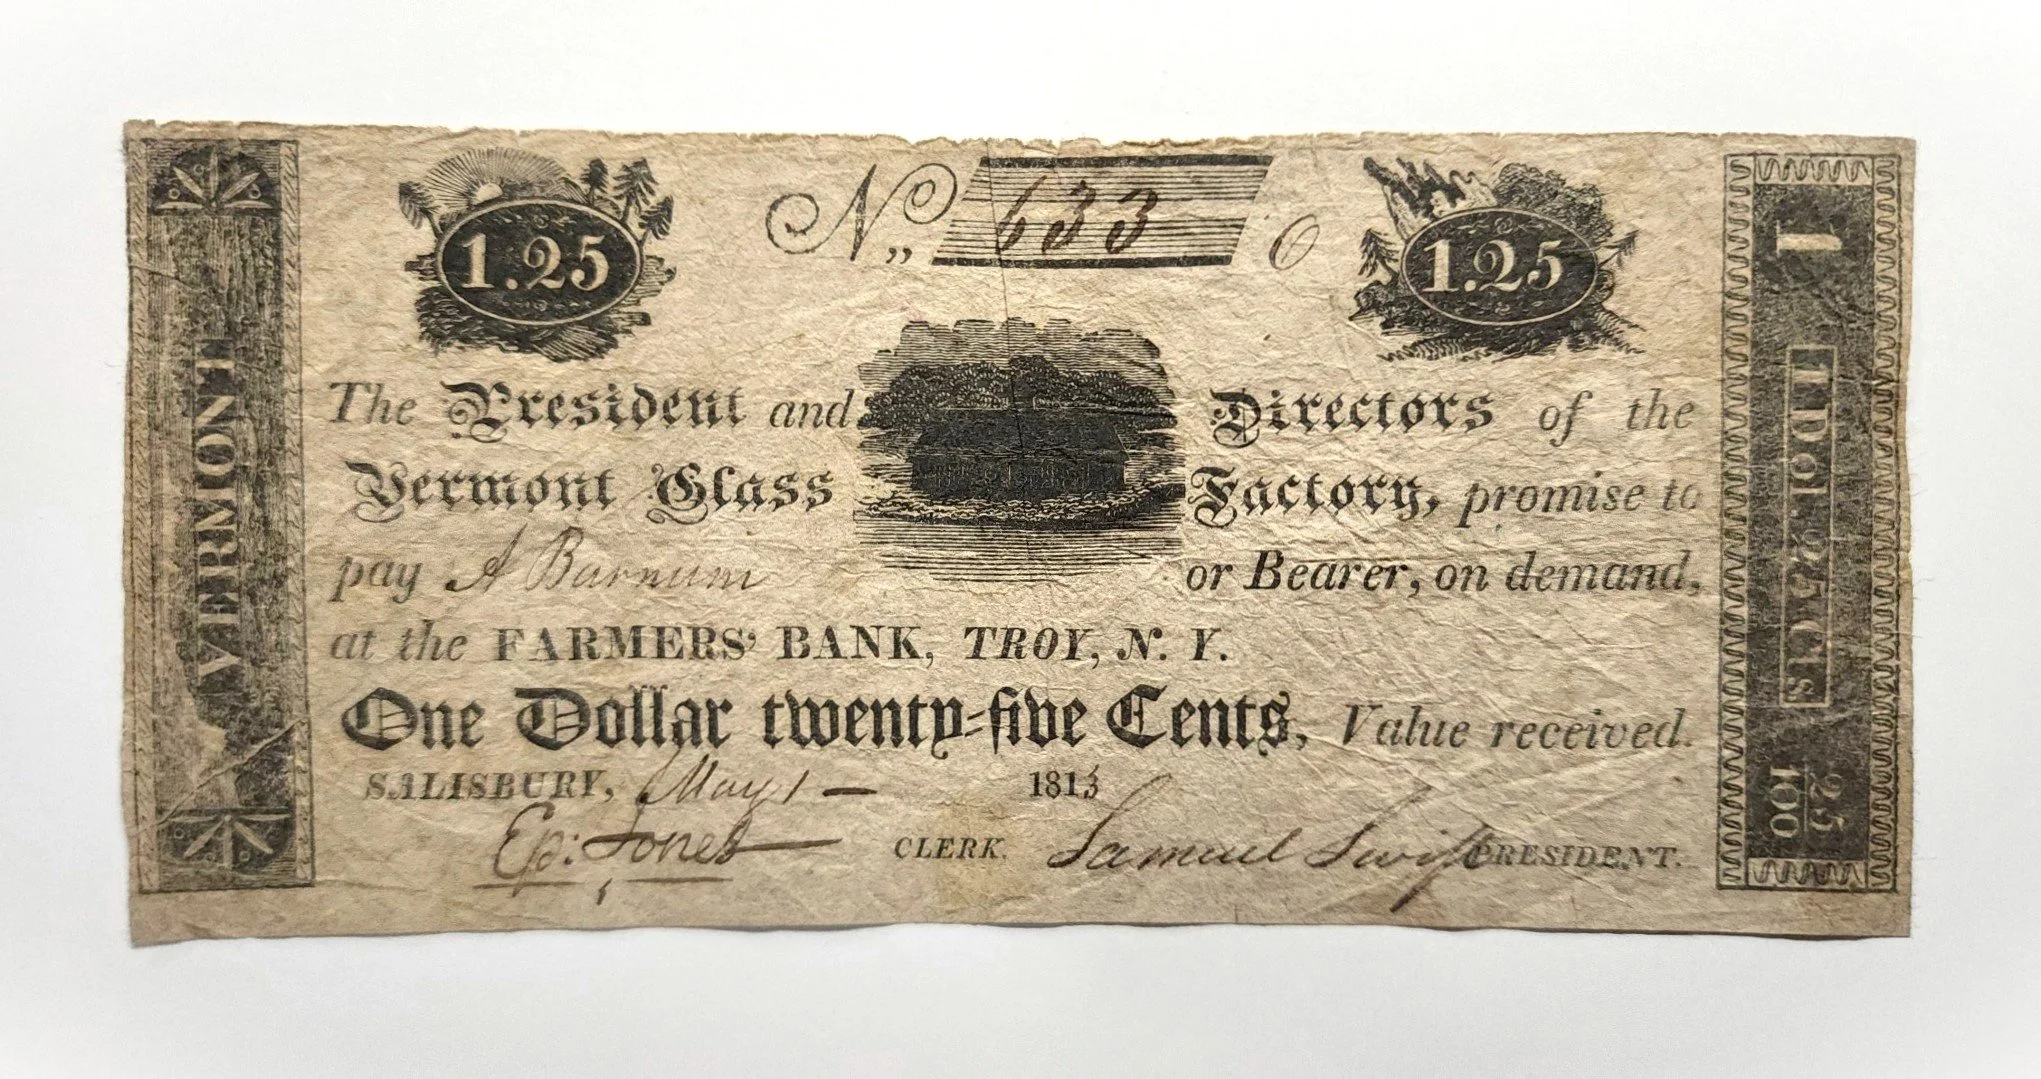 1.25 No,, 633 1.25
The President and Directors of the
Vermont Glass Factory, promise to
pay A Barnum or Bearer, on demand,
at the FARMERS' BANK, TROY, N. Y.
One Dollar twenty-five Cents, Value received.
SALISBURY, May 1 — 1813
Ep: Jones CLERK. Samuel Swift PRESIDENT.
VERMONT
1 1 Dol. 25 Cts 25/100